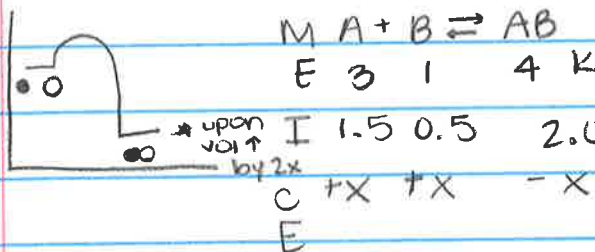 M A + B ⇌ AB
E 3 1 4 K
* upon vol ↑ by 2x
I 1.5 0.5 2.0
C +X +X - X
E